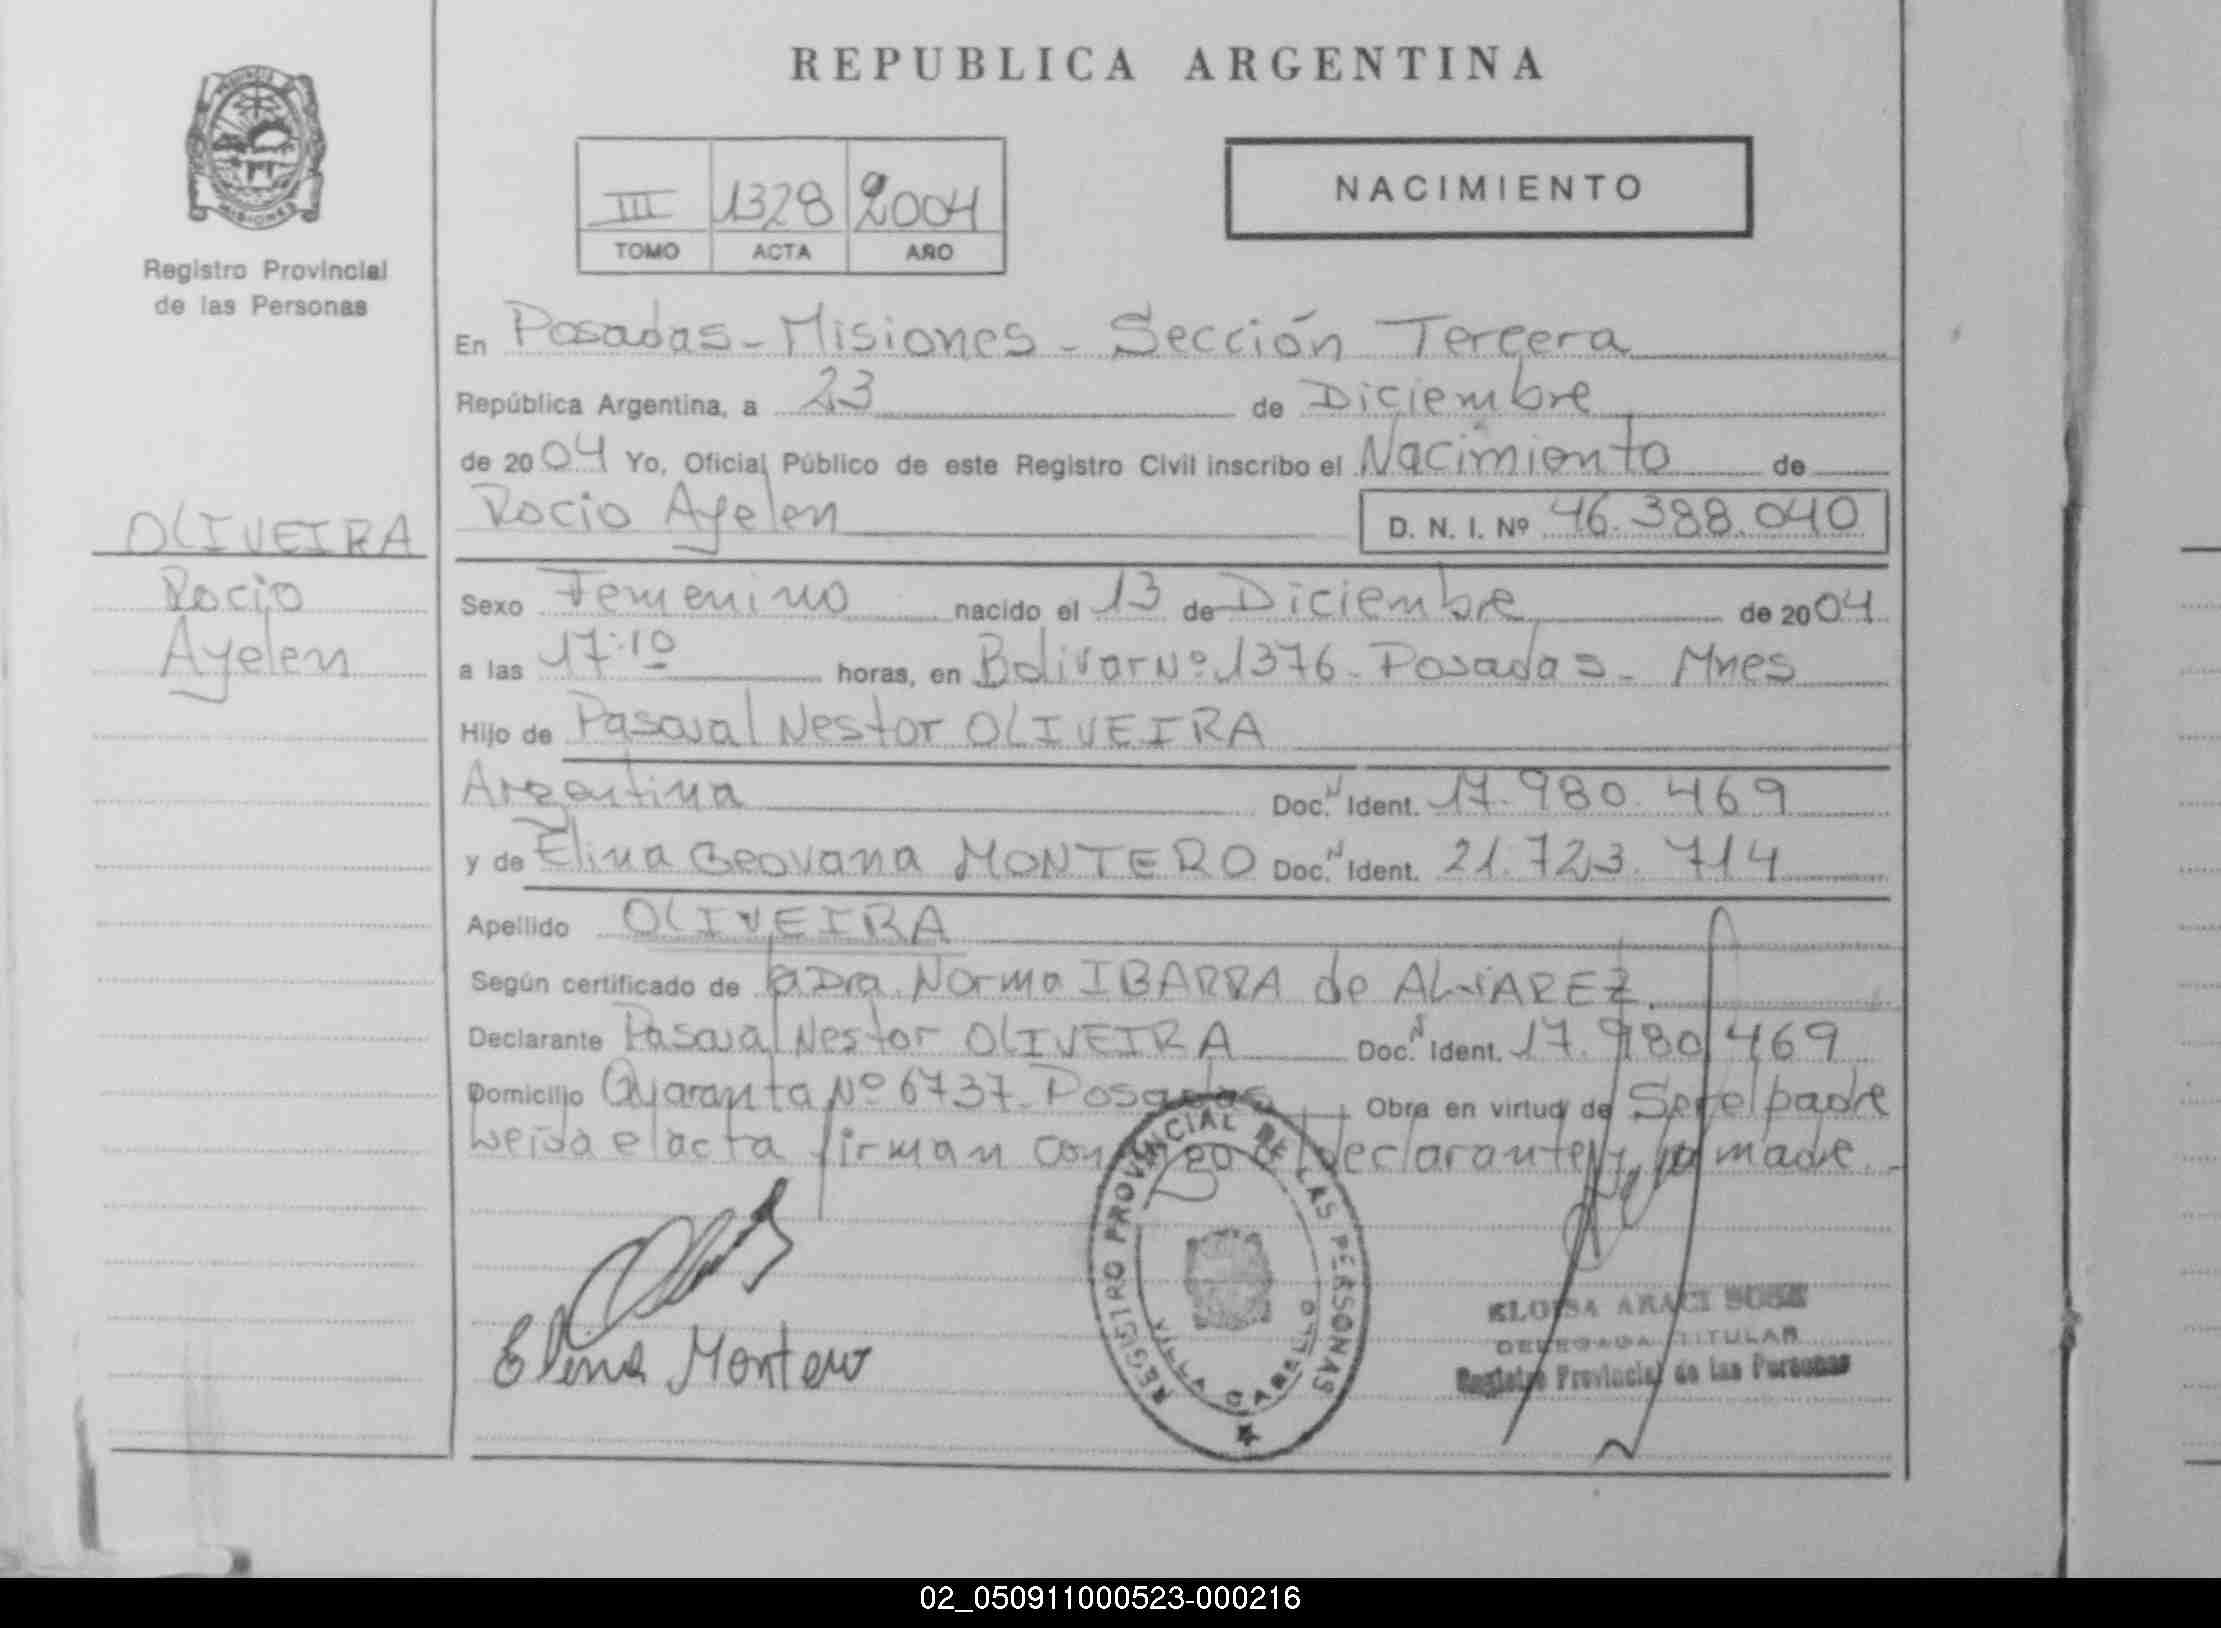 REPUBLICA ARGENTINA
PROVINCIA
MISIONES
Registro Provincial
de las Personas
III 1328 2004
TOMO ACTA AÑO
NACIMIENTO
En Posadas - Misiones - Sección Tercera
República Argentina, a 23 de Diciembre
de 2004 Yo, Oficial Público de este Registro Civil inscribo el Nacimiento de
Rocio Ayelen D. N. I. Nº 46.388.040
OLIVEIRA
Rocio
Ayelen
Sexo Femenino nacido el 13 de Diciembre de 2004
a las 17:10 horas, en Bolivar Nº 1376 - Posadas - Mnes
Hijo de Pascual Nestor OLIVEIRA
Argentina Doc. N Ident. 17.980.469
y de Elina Geovana MONTERO Doc. N Ident. 21.723.714
Apellido OLIVEIRA
Según certificado de la Dra. Norma IBARRA de ALVAREZ.
Declarante Pascual Nestor OLIVEIRA Doc. N Ident. 17.980.469
Domicilio Quaranta Nº 6737 - Posadas Obra en virtud de Ser el padre
Leida el acta firman conmigo el declarante y la madre.
Elina Montero
REGISTRO PROVINCIAL DE LAS PERSONAS
VILLA CABELLO
ELOISA ARACI
DELEGADA TITULAR
Registro Provincial de las Personas
02_050911000523-000216